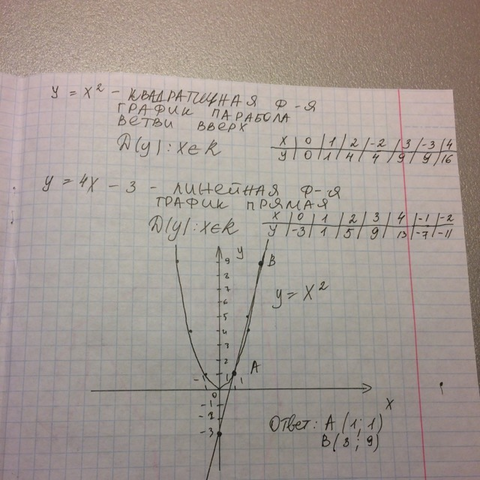 y = x² - КВАДРАТИЧНАЯ Ф-Я
ГРАФИК ПАРАБОЛА
ВЕТВИ ВВЕРХ
D(y): x∈R
x | 0 | 1 | 2 | -2 | 3 | -3 | 4
y | 0 | 1 | 4 | 4 | 9 | 9 | 16
y = 4x - 3 - ЛИНЕЙНАЯ Ф-Я
ГРАФИК ПРЯМАЯ
D(y): x∈R
x | 0 | 1 | 2 | 3 | 4 | -1 | -2
y | -3 | 1 | 5 | 9 | 13 | -7 | -11
y
B
9
8
7
6
5
4
3
2
1
y = x²
A
-1
0
1
x
-1
-2
-3
Ответ: A (1; 1)
B (3; 9)